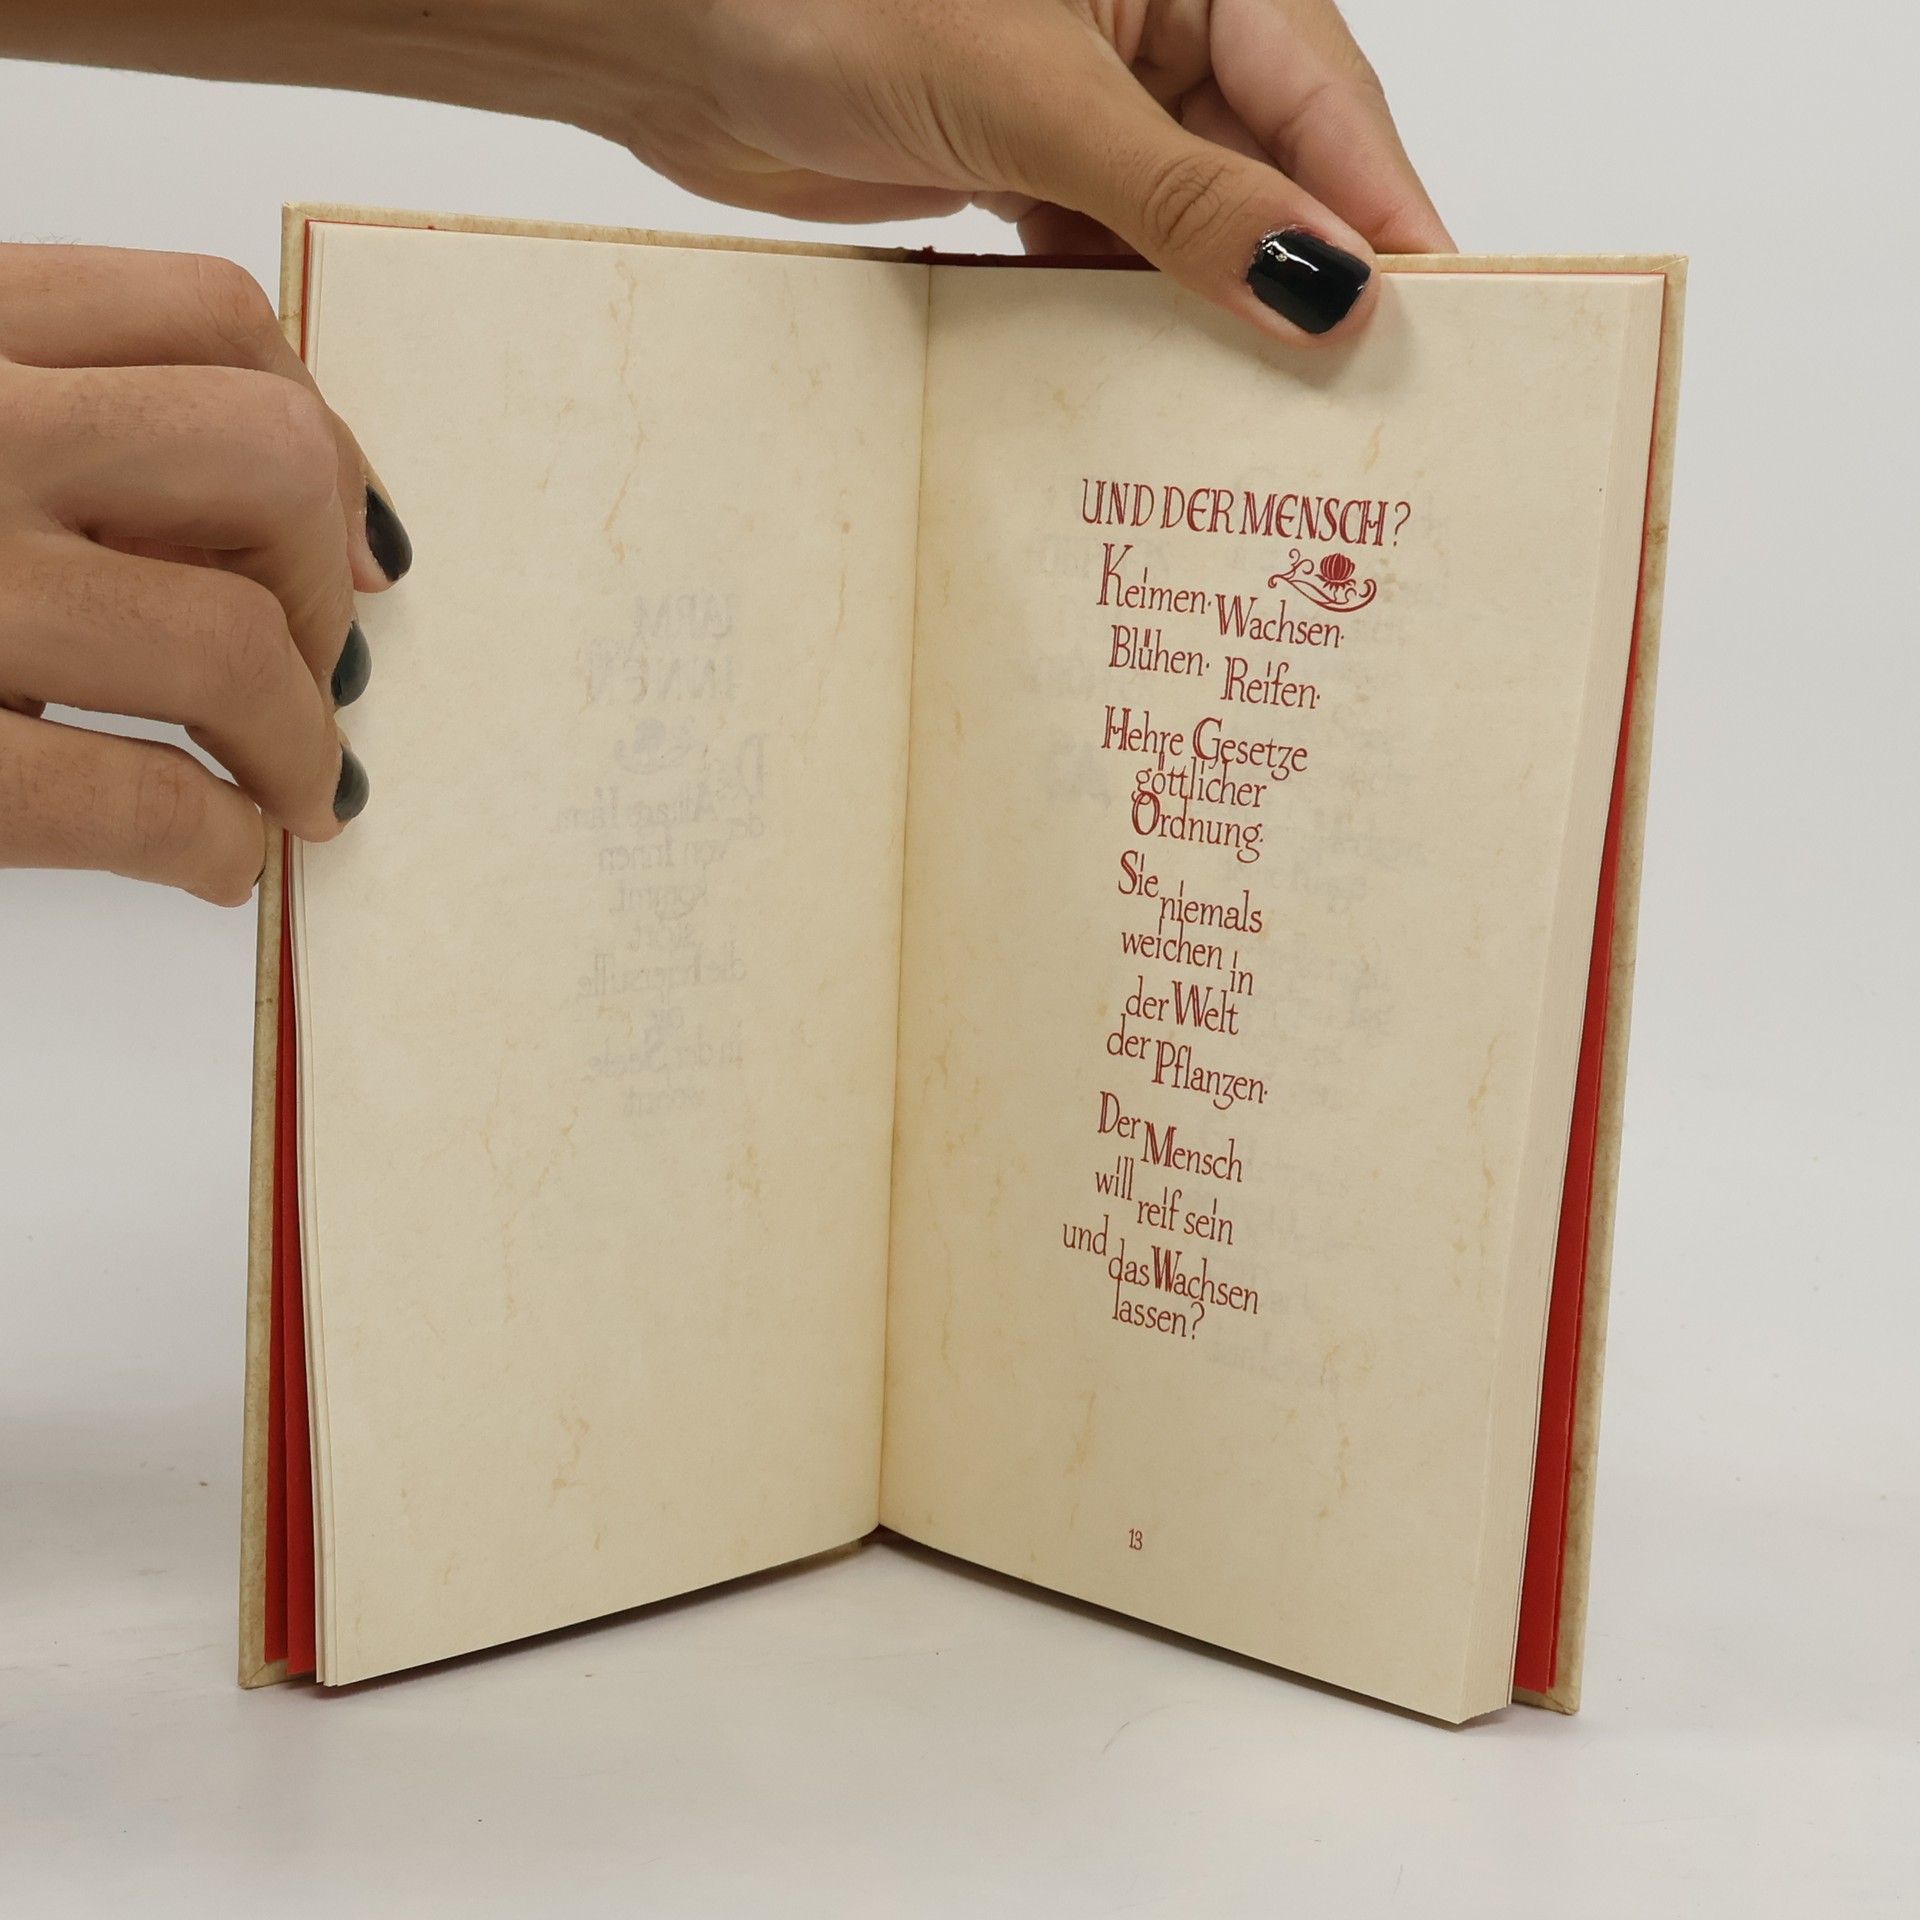 UND DER MENSCH?
Keimen· Wachsen·
Blühen· Reifen·
Hehre Gesetze
göttlicher
Ordnung·
Sie niemals
weichen in
der Welt
der Pflanzen·
Der Mensch
will reif sein
und das Wachsen
lassen?
13